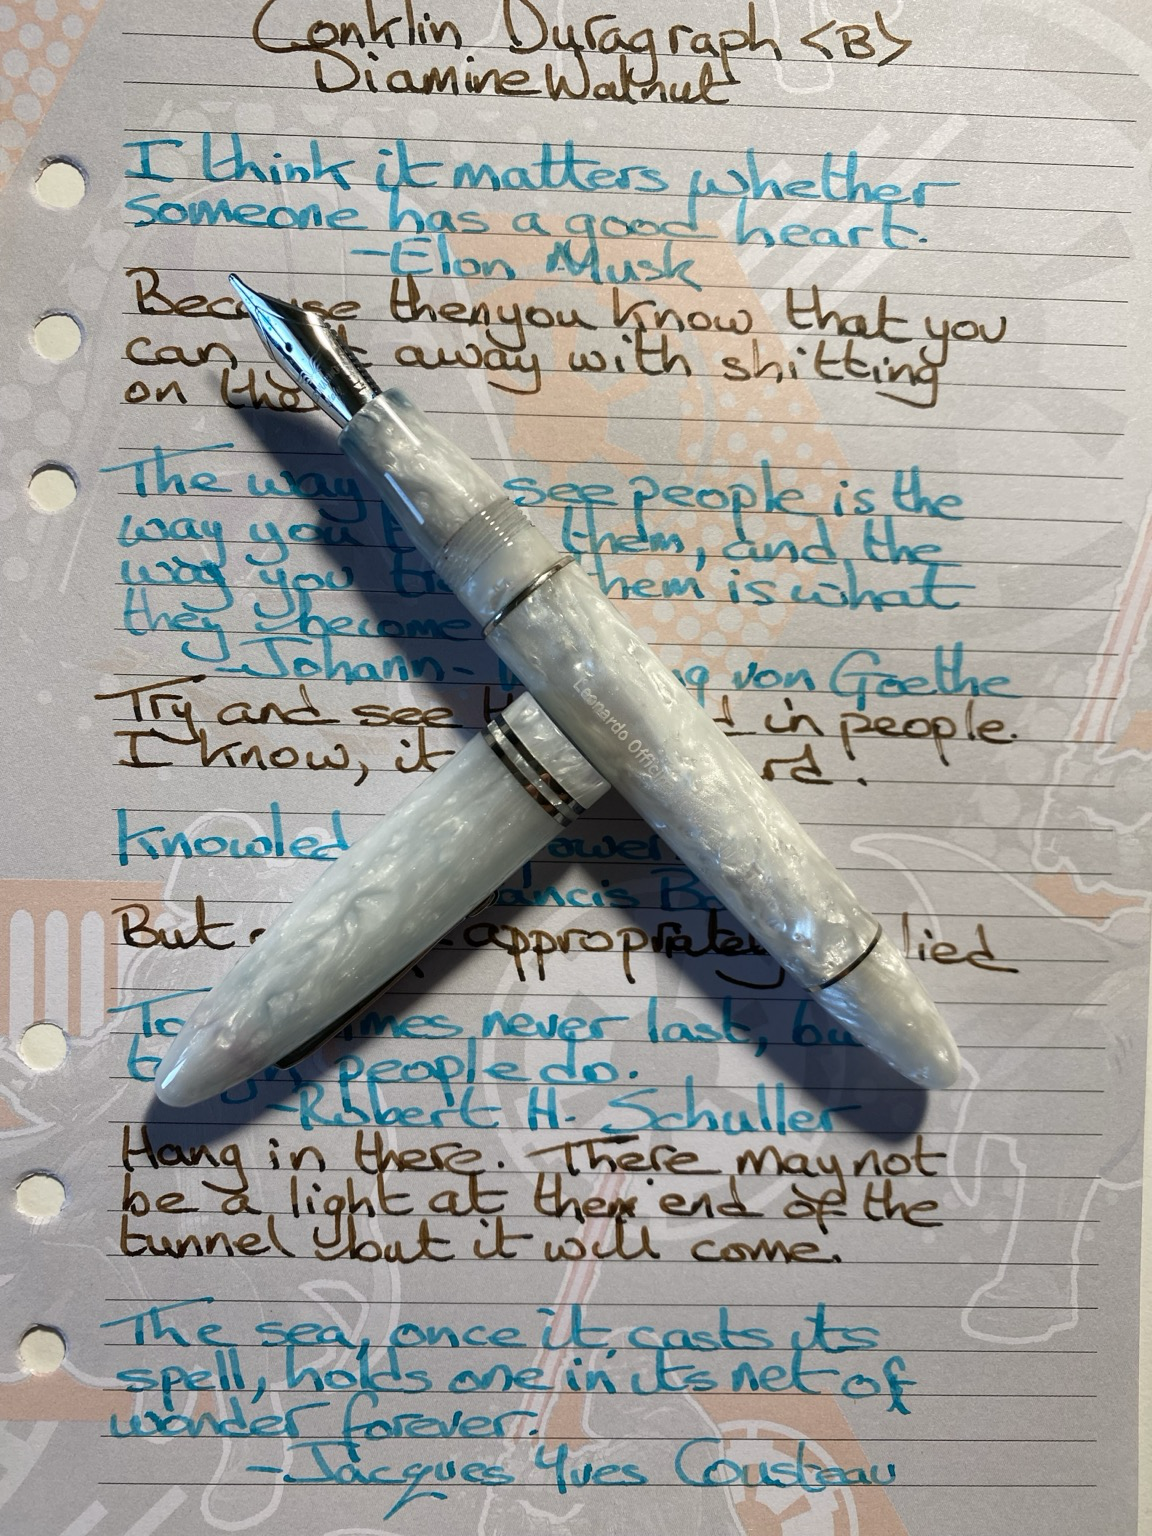 Conklin Duragraph <B>
Diamine Walnut
I think it matters whether
someone has a good heart.
-Elon Musk
Because then you know that you
can away with shitting
on
The way see people is the
way you them, and the
way you them is what
they become
-Johann- von Goethe
Try and see in people.
I know, it
Knowled ower
ancis
But appropriately lied
To mes never last, bu
people do.
-Robert H. Schuller
Hang in there. There may not
be a light at the end of the
tunnel but it will come.
The sea, once it casts its
spell, holds one in its net of
wonder forever.
-Jacques Yves Cousteau
Leonardo Offici